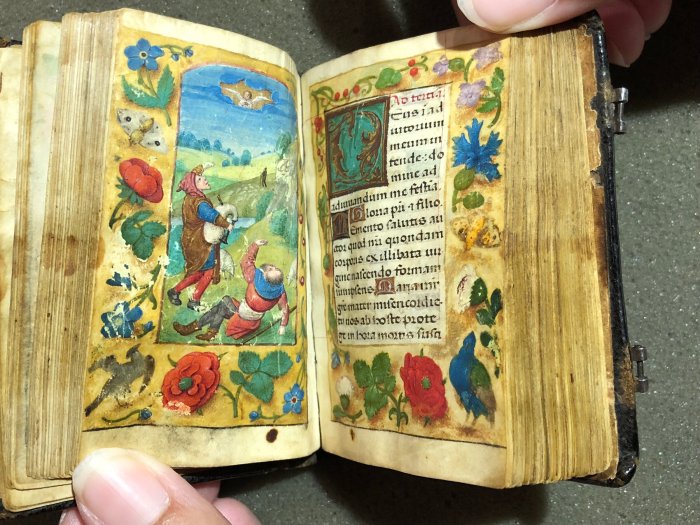 Ad tertia.
Deus i ad
iutorium
meum in
tende: do
mine ad
adiuuandum me festia.
Gloria pri & filio.
Memento salutis au
ctor quod nri quondam
corporis ex illibata uir
gine nascendo formam
sumpseris. Maria mr
gre mater misericordie
tu nos ab hoste prote
ge in hora mortis susci